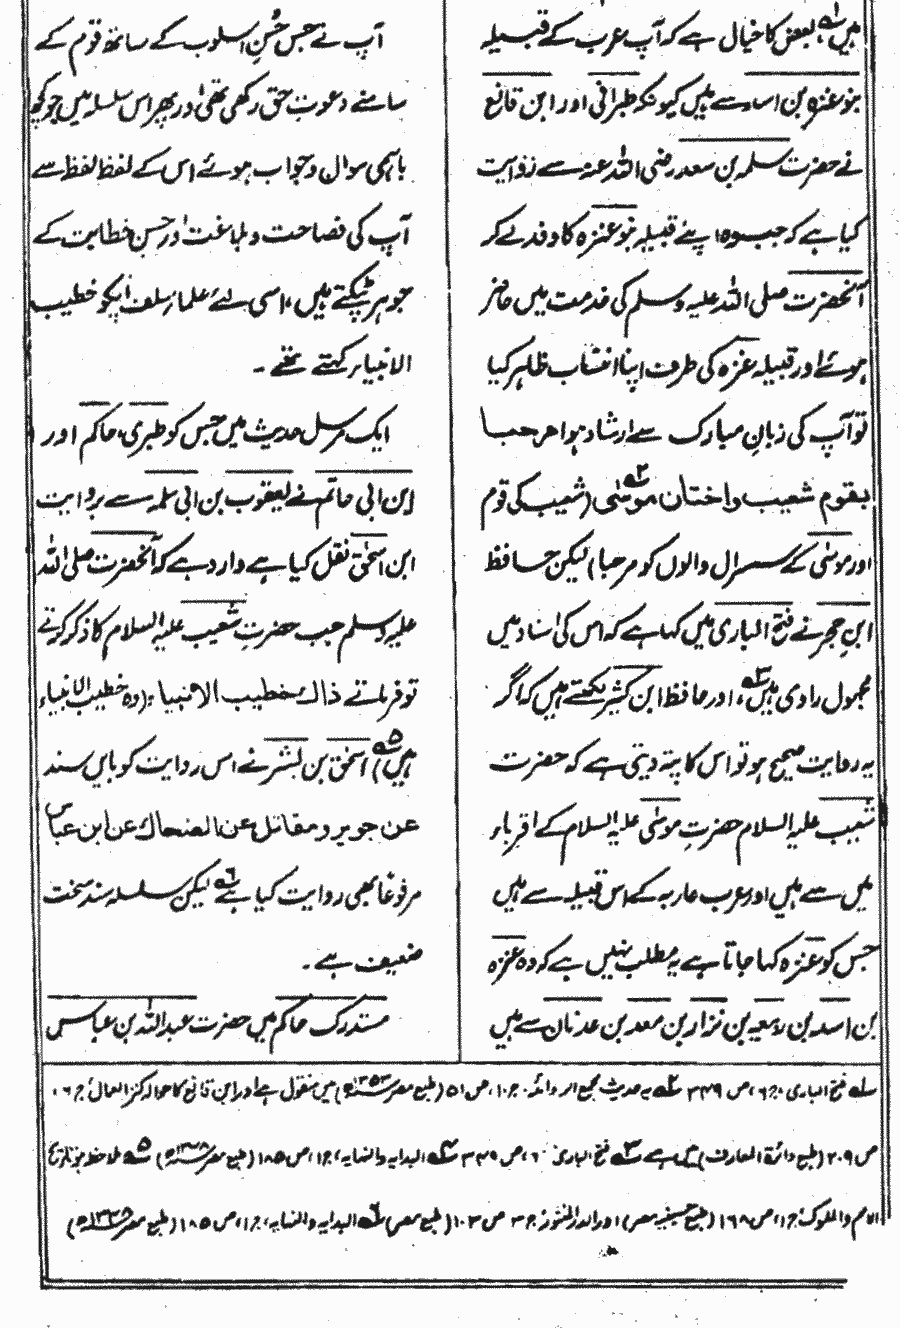 ہیں لہ، بعض کا خیال ہے کہ آپ عرب کے قبیلہ
بنو عنزہ بن اسد سے ہیں کیونکہ طبرانی اور ابن قانع
نے حضرت سلمہ بن سعد رضی اللہ عنہ سے روایت
کیا ہے کہ جب وہ اپنے قبیلہ بنو عنزہ کا وفد لے کر
آنحضرت صلی اللہ علیہ وسلم کی خدمت میں حاضر
ہوئے اور قبیلہ عنزہ کی طرف اپنا انتساب ظاہر کیا
تو آپ کی زبانِ مبارک سے ارشاد ہوا مرحبا
بقوم شعیب واختان موسٰی ۲ (شعیب کی قوم
اور موسٰی کے سسرال والوں کو مرحبا) لیکن حافظ
ابنِ حجر نے فتح الباری میں کہا ہے کہ اس کی اسناد میں
مجہول راوی ہیں ۳، اور حافظ ابن کثیر لکھتے ہیں کہ اگر
یہ روایت صحیح ہو تو اس کا پتہ دیتی ہے کہ حضرت
شعیب علیہ السلام حضرتِ موسٰی علیہ السلام کے اقرباء
میں سے ہیں اور عرب عاربہ کے اس قبیلہ سے ہیں
جس کو عنزہ کہا جاتا ہے یہ مطلب نہیں ہے کہ وہ عنزہ
بن اسد بن ربیعہ بن نزار بن معد بن عدنان سے ہیں
آپ نے جس حُسنِ اسلوب کے ساتھ قوم کے
سامنے دعوتِ حق رکھی تھی اور پھر اس سلسلہ میں جو کچھ
باہمی سوال وجواب ہوئے اس کے لفظ لفظ سے
آپ کی فصاحت وبلاغت اور حسنِ خطابت کے
جوہر ٹپکتے ہیں، اسی لئے علماء سلف آپکو خطیب
الانبیاء کہتے تھے۔
ایک مرسل حدیث میں جس کو طبری، حاکم اور
ابن ابی حاتم نے یعقوب بن ابی سلمہ سے بروایت
ابن اسحٰق نقل کیا ہے وارد ہے کہ آنحضرت صلی اللہ
علیہ وسلم جب حضرتِ شعیب علیہ السلام کا ذکر کرتے
تو فرماتے ذاك خطیب الانبیاء (وہ خطیب الانبیاء
ہیں) ۵ اسحٰق بن بشر نے اس روایت کو بایں سند
عن جویبر ومقاتل عن الضحاك عن ابن عباس
مرفوعاً بھی روایت کیا ہے ۶ لیکن سلسلہ سند سخت
ضعیف ہے۔
مستدرک حاکم میں حضرت عبد اللہ بن عباس
لہ فتح الباری، ج ۶، ص ۳۴۹ ۲ یہ حدیث مجمع الزوائد، ج ۱۰، ص ۵۱ (طبع مصر ۱۳۵۳ھ) میں منقول ہے اور ابن قانع کا حوالہ کنز العمال، ج ۶،
ص ۲۰۹ (طبع دائرۃ المعارف) میں ہے ۳ فتح الباری، ۶، ص ۳۴۹ ۴ البدایہ والنہایہ، ج ۱، ص ۱۸۵ (طبع مصر ۱۳۴۸ھ) ۵ ملاحظہ ہو تاریخ
الامم والملوک، ج ۱، ص ۱۶۸ (طبع حسینیہ مصر) اور الدر المنثور، ج ۳ ص ۱۰۳ (طبع مصر) ۶ البدایہ والنہایہ، ج ۱، ص ۱۸۵ (طبع مصر